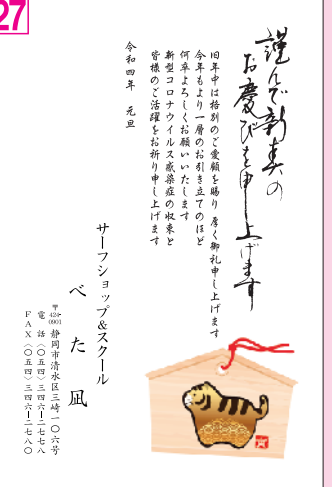 27
謹んで新春の
お慶びを申し上げます
旧年中は格別のご愛顧を賜り 厚く御礼申し上げます
今年もより一層のお引き立てのほど
何卒よろしくお願いいたします
新型コロナウイルス感染症の収束と
皆様のご活躍をお祈り申し上げます
令和四年 元旦
サーフショップ&スクール
べた凪
〒424-0901 静岡市清水区三崎一〇六号
電話(〇五四)三四六ー二七七八
FAX(〇五四)三四六ー二七八〇